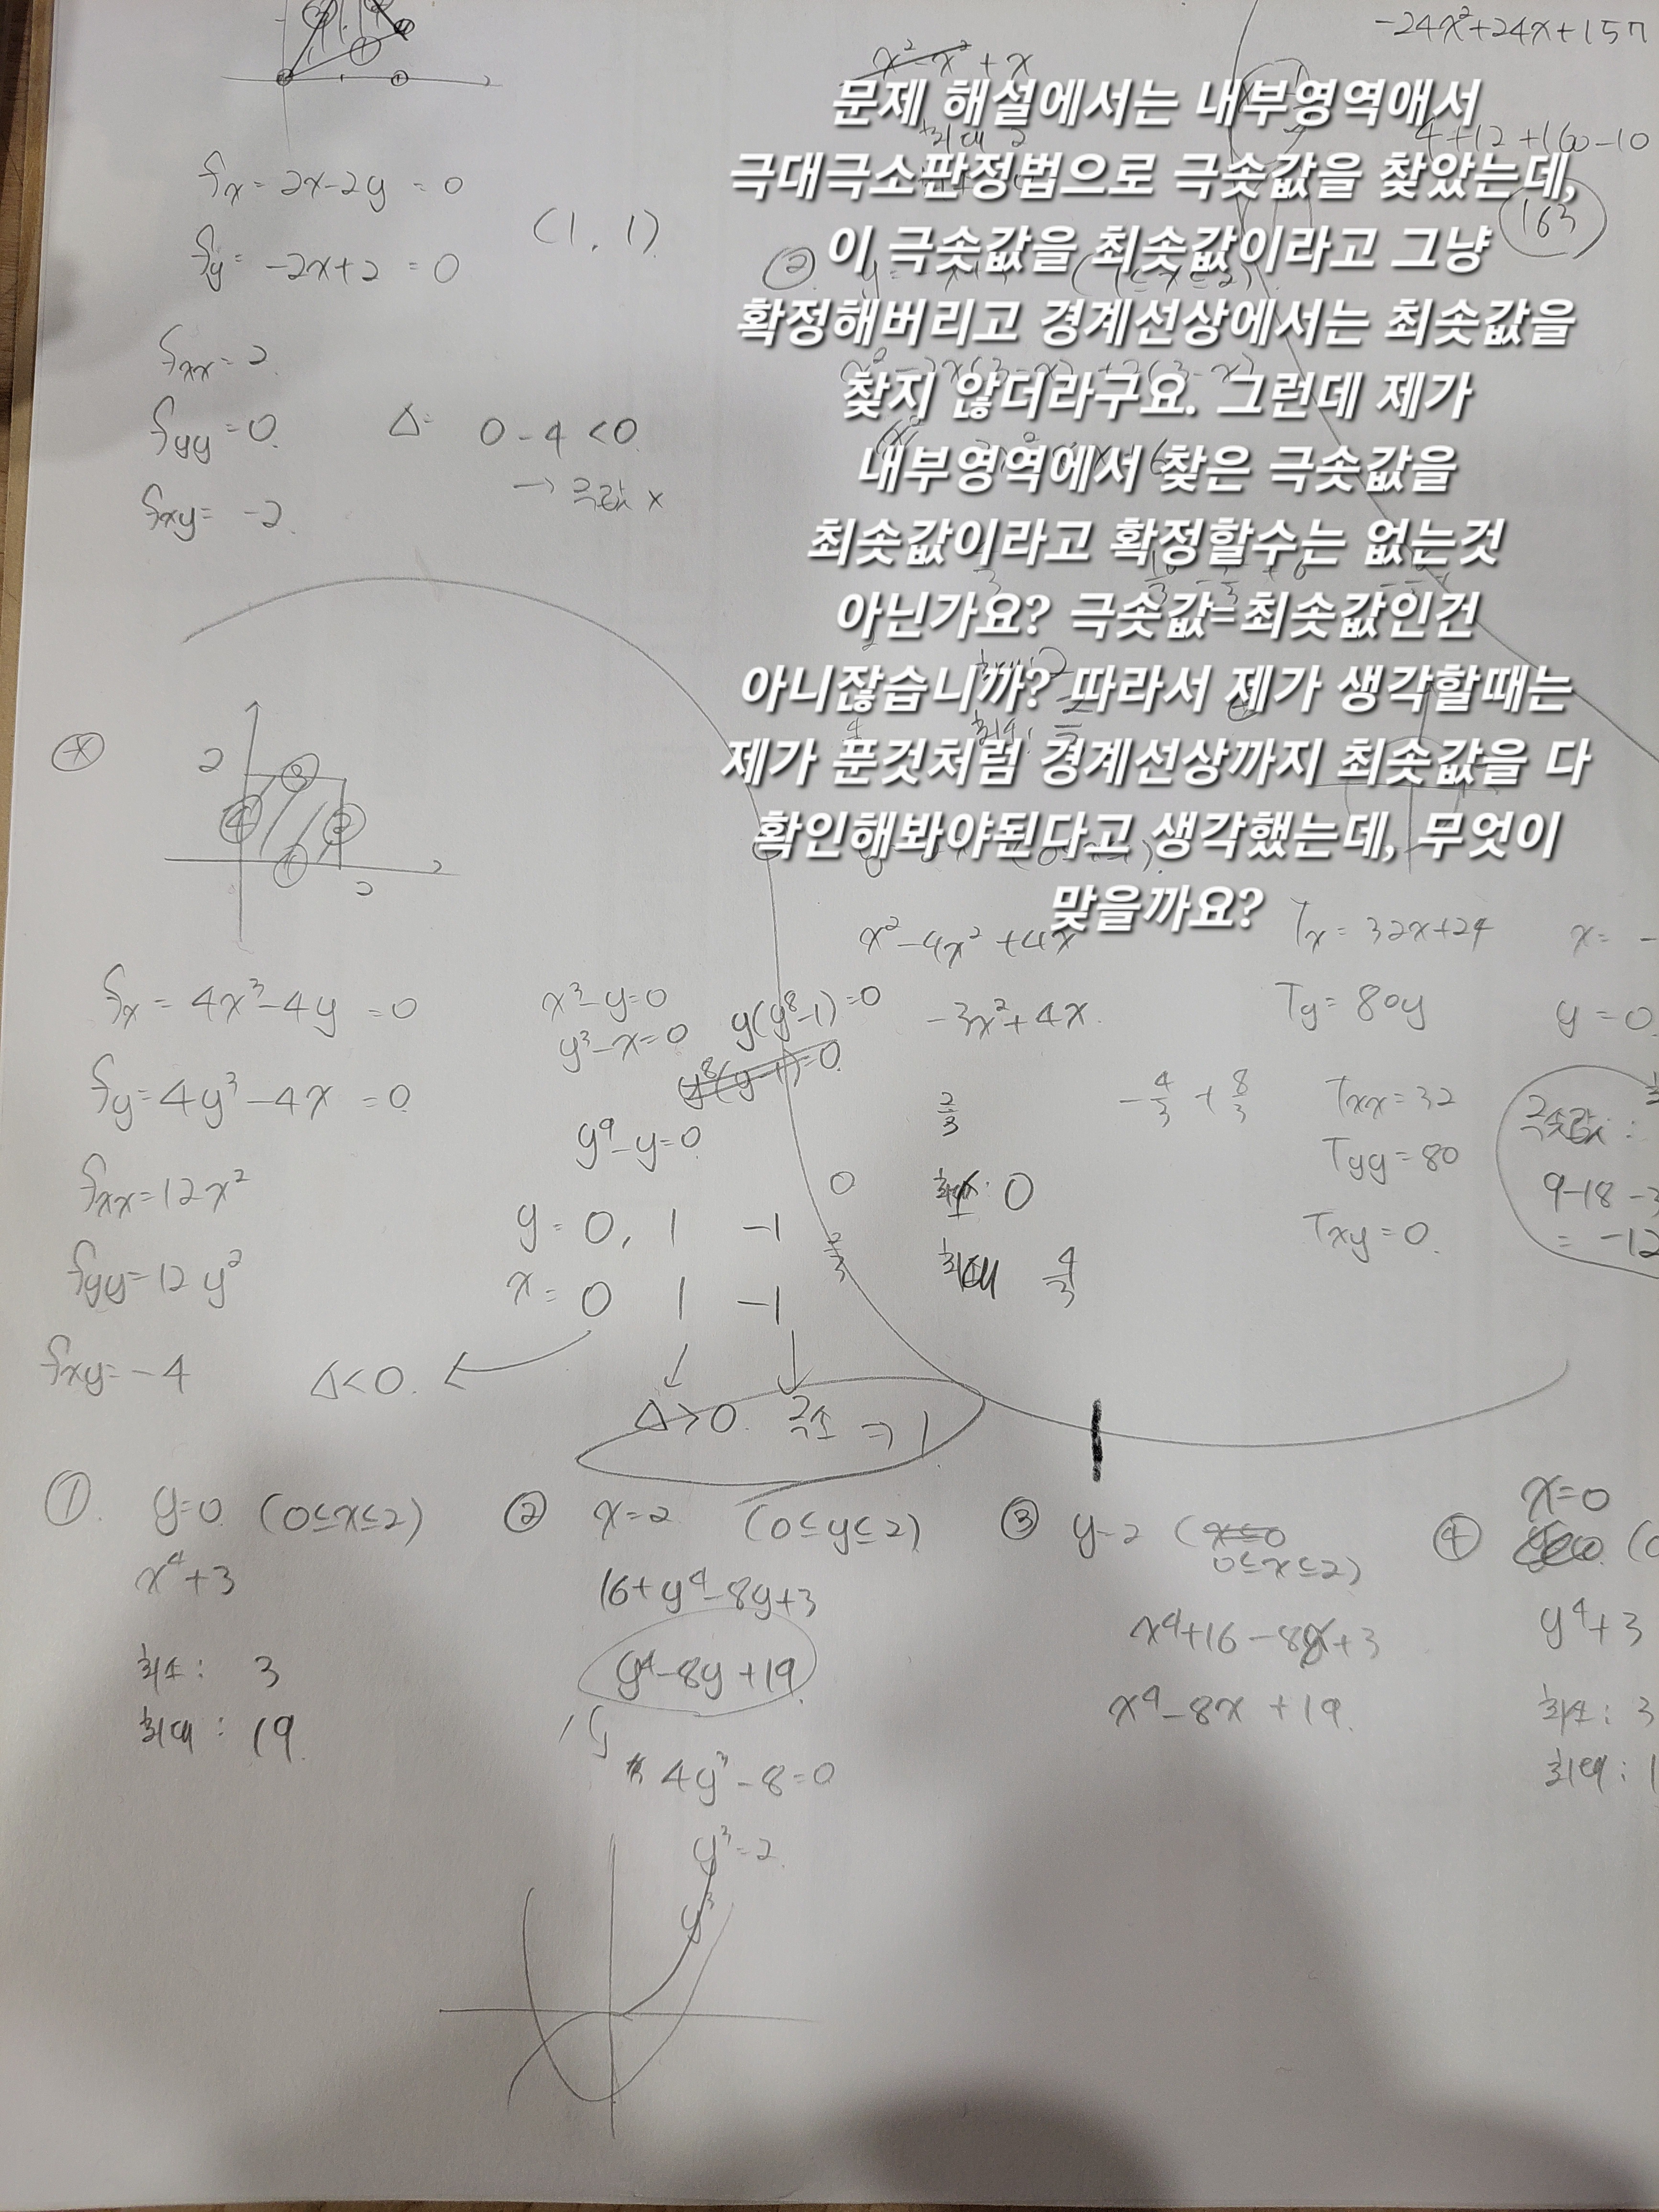 -24x²+24x+157
x²-x²+x
문제 해설에서는 내부영역애서
극대극소판정법으로 극솟값을 찾았는데,
이 극솟값을 최솟값이라고 그냥
확정해버리고 경계선상에서는 최솟값을
찾지 않더라구요. 그런데 제가
내부영역에서 찾은 극솟값을
최솟값이라고 확정할수는 없는것
아닌가요? 극솟값=최솟값인건
아니잖습니까? 따라서 제가 생각할때는
제가 푼것처럼 경계선상까지 최솟값을 다
확인해봐야된다고 생각했는데, 무엇이
맞을까요?
4+12+160-10
163
fx = 2x-2y = 0
fy = -2x+2 = 0
(1, 1)
fxx = 2
fyy = 0
fxy = -2
Δ= 0-4 <0
→ 극값 x
②
2
③
④
②
①
2
fx = 4x³-4y = 0
fy = 4y³-4x = 0
fxx = 12x²
fyy = 12y²
fxy = -4
x³-y=0
y³-x=0
y(y⁸-1)=0
y⁸(y-1)=0
y⁹-y=0
y = 0, 1 -1
x = 0 1 -1
Δ<0
Δ>0. 극소 ⇒ 1
x²-4x²+4x
-3x²+4x
2/3
-4/3 + 8/3
0
2/3
최소: 0
최대 4/3
Tx = 32x+24
Ty = 80y
x = -
y = 0
Txx = 32
Tyy = 80
Txy = 0
극솟값:
9-18-3
= -12
① y=0 (0≤x≤2)
x⁴+3
최소: 3
최대: 19
② x=2 (0≤y≤2)
16+y⁴-8y+3
y⁴-8y+19
4y³-8=0
y³=2
y³
③ y=2 (x≤0
0≤x≤2)
x⁴+16-8x+3
x⁴-8x+19
④ x=0
(0
y⁴+3
최소: 3
최대: 1